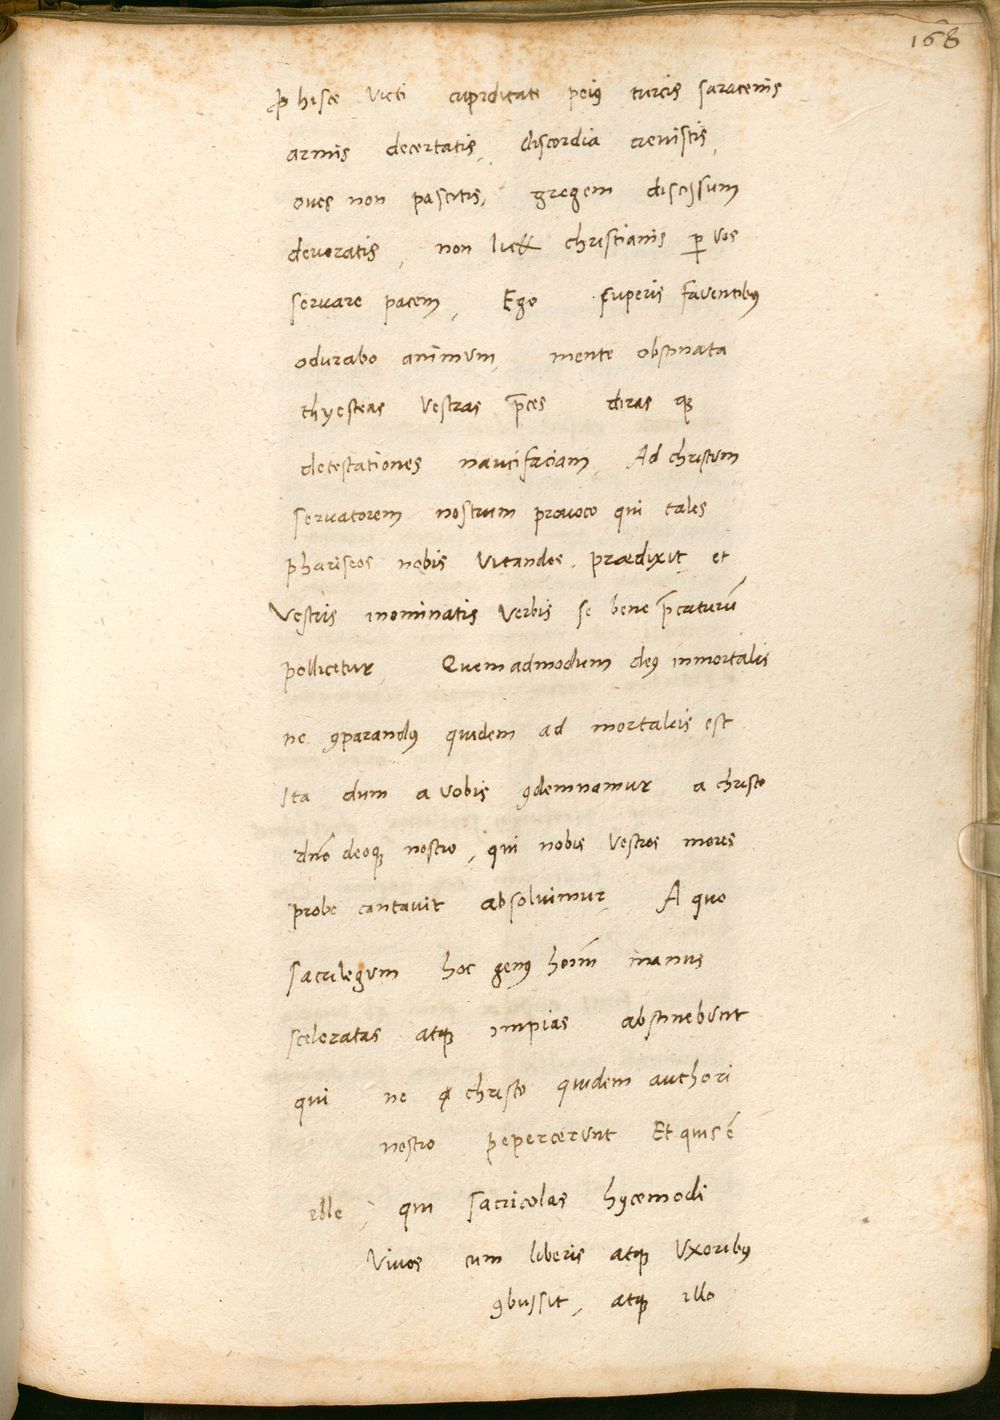 168
ꝓ hisce victi cupiditate peiꝰ turcis saracenis
armis decertatis, discordia crevistis,
oues non pascitis, gregem discissum
deuoratis, non christianis ꝑ vos
seruare pacem, Ego superis faventibꝰ
odurabo animum, mente obstinata
thyesteas vestras p̄ces diras qꝫ
detestationes naucifaciam, Ad christum
seruatorem nostrum prouoco qui tales
phariseos nobis vitandos, prædixit, et
Vestris inominatis verbis se bene p̄caturū
pollicetur, Quemadmodum deꝰ inmortalis
ne ꝯparandꝰ quidem ad mortaleis est
Ita dum a vobis ꝯdemnamur a christo
dn̄o deoqꝫ nostro, qui nobis vestros mores
probe cantauit absoluimur, A quo
sacrilegum hoc genꝰ hoīm manus
sceleratas atqꝫ impias abstinebunt
qui ne christo quidem authori
nostro pepercerunt Et quis ē
ille, qui sacricolas hycemodi
Vivos cum liberis atqꝫ Vxoribꝰ
ꝯbussit, atqꝫ illo